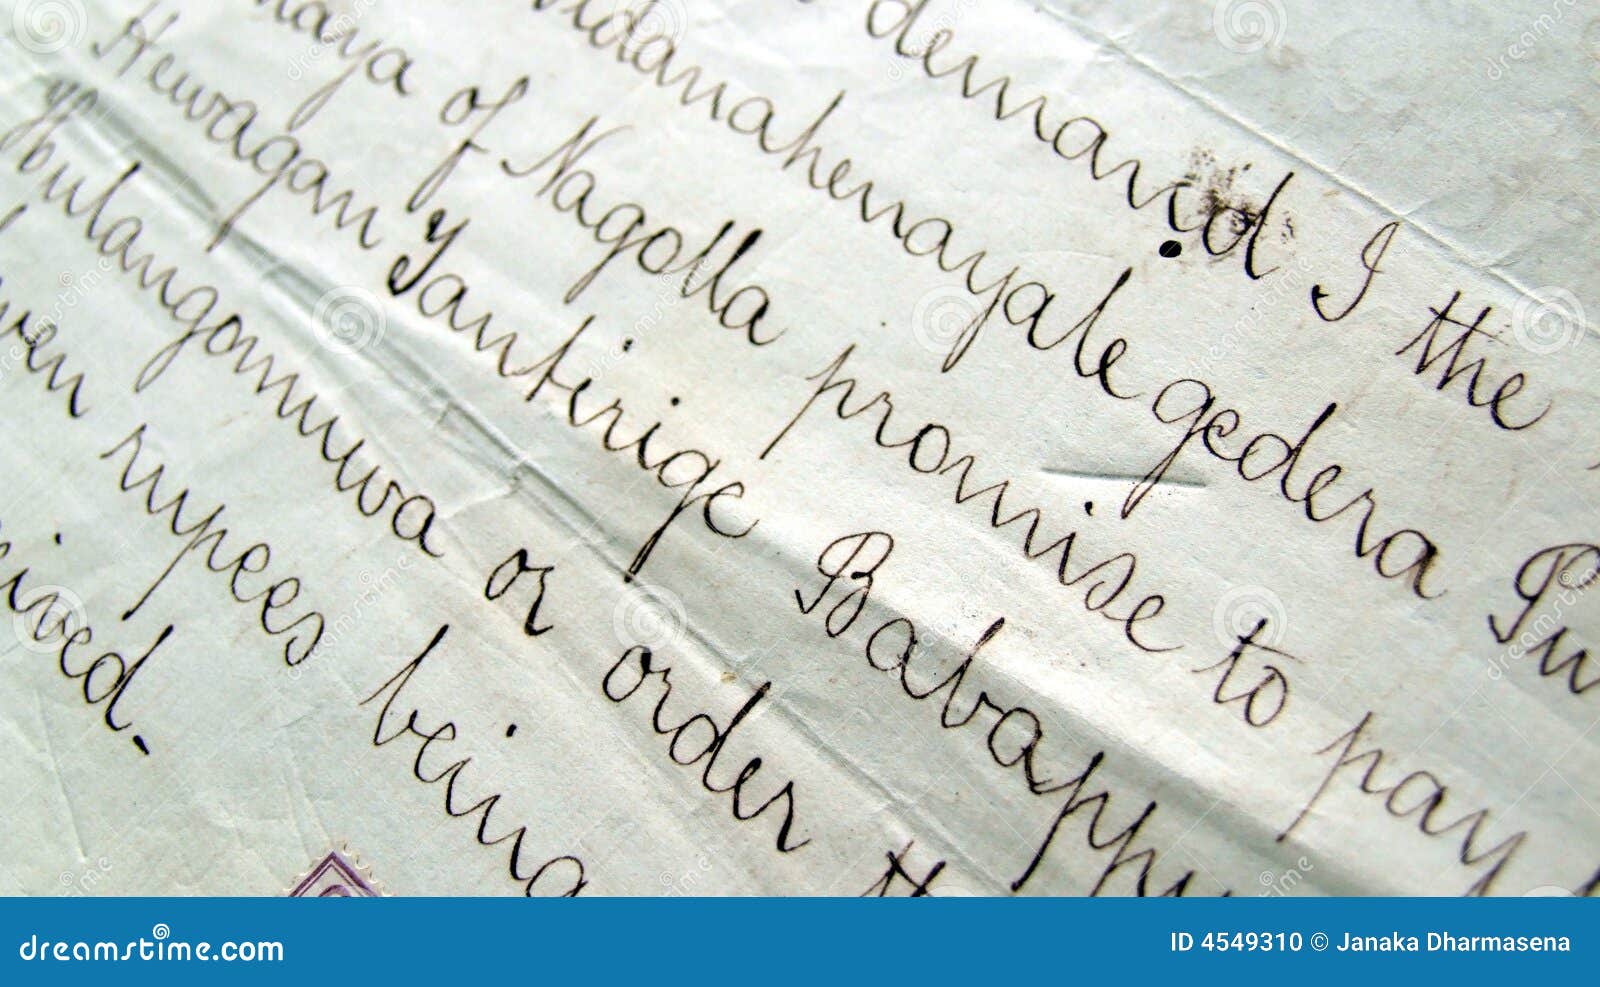 demand I the
idanahenayalegedera Pu
naya of Nagolla promise to pay
Hewagan Yantirige Babappu
Hulangomuwa or order th
ven rupees being
eived.
dreamstime.com
ID 4549310 © Janaka Dharmasena